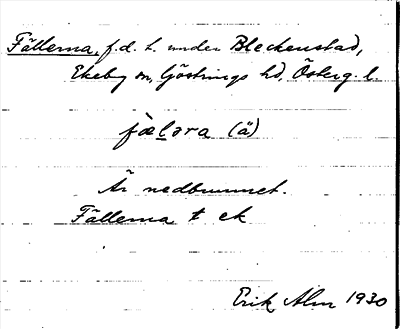 Fällerna, f.d. t. under Bleckenstad,
Ekeby sn, Göstrings hd, Österg. l.
fælәra (ä)
Är nedbrunnet.
Fällerna t ek
Erik Alm 1930